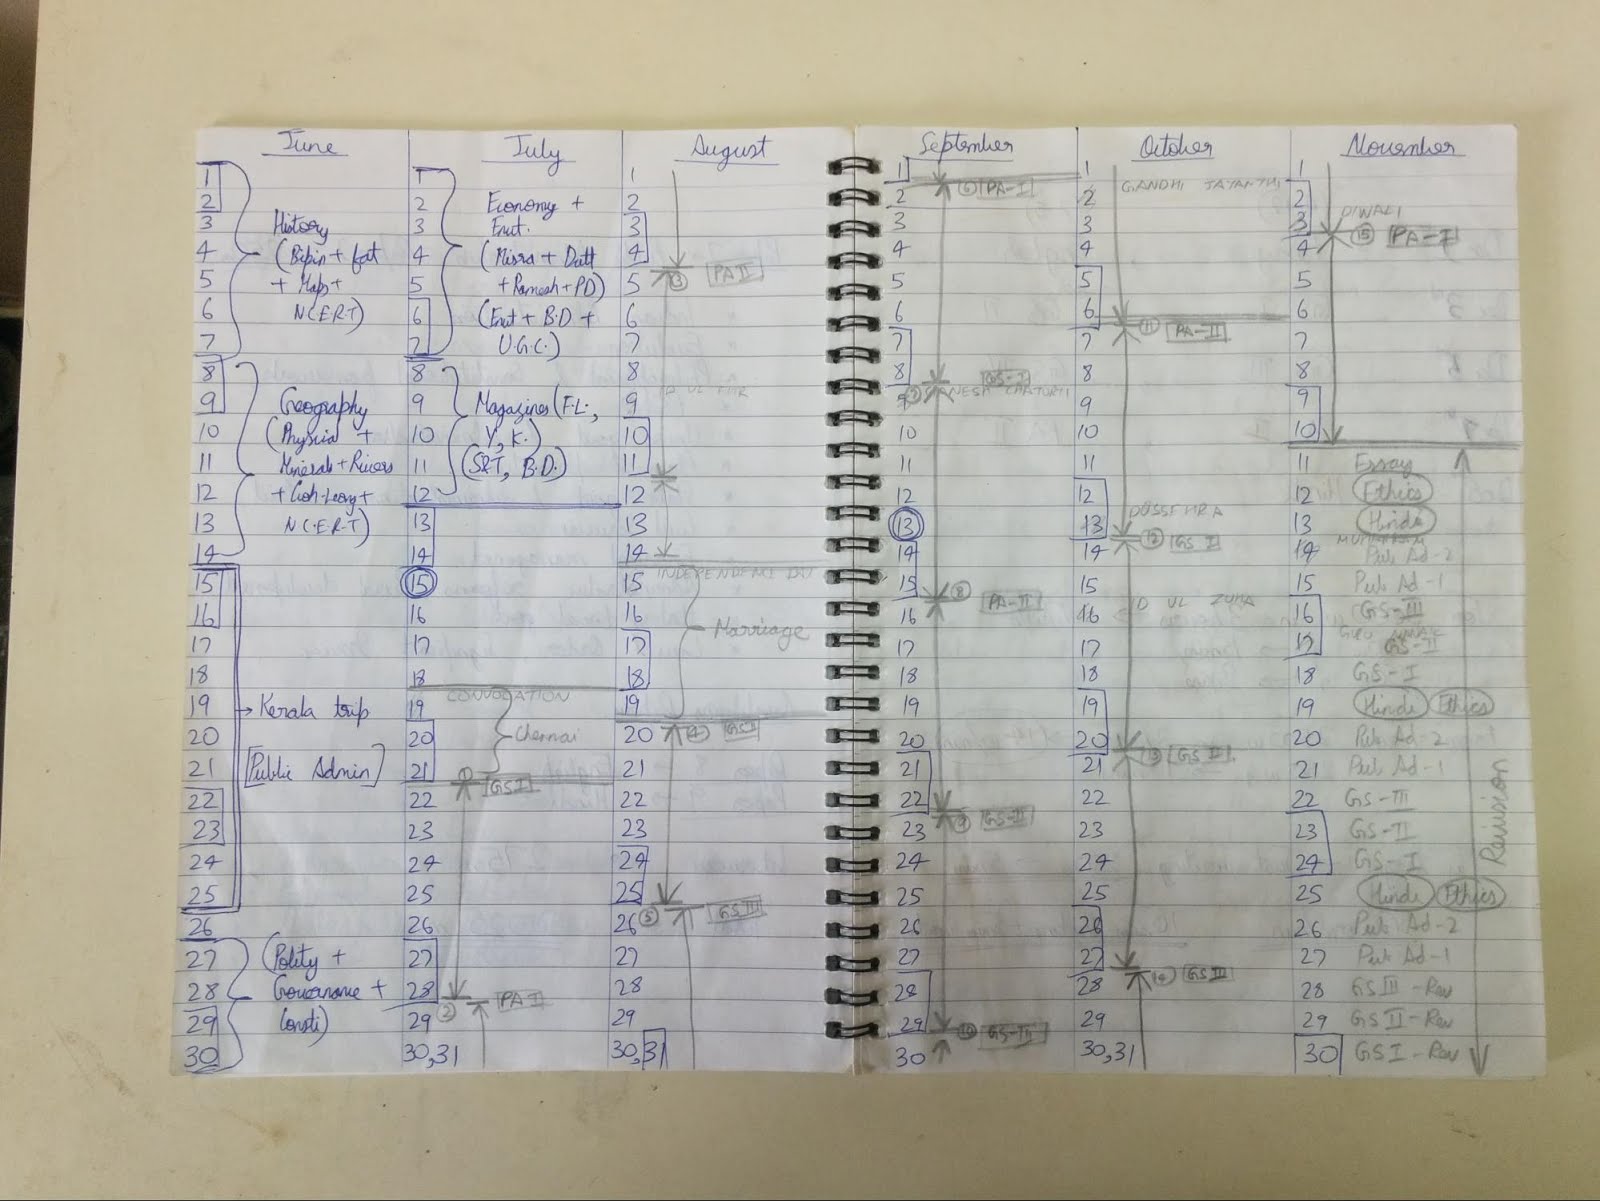 June
1
2
3 History
4 (Bipin + fat
5 + Maps +
6 N.C.E.R.T)
7
8
9 Geography
10 (Physical +
11 Minerals + Rivers
12 + Goh-Leong +
13 N.C.E.R.T)
14
15
16
17
18
19 → Kerala trip
20
21 [Public Admin]
22
23
24
25
26
27 (Polity +
28 Governance +
29 Consti)
30
July
1
2 Economy +
3 Envt.
4 (Misra + Datt
5 + Ramesh + PD)
6 (Envt + B.D +
7 U.G.C.)
8
9 Magazines (F.L.,
10 Y, K.)
11 (S&T, B.D.)
12
13
14
15
16
17
18
CONVOCATION
19
20 Chennai
21
GS I
22
23
24
25
26
27
28
② PA I
29
30,31
August
1
2
3
4
5 ③ PA II
6
7
8
ID UL FITR
9
10
11
12
13
14
INDEPENDENCE DAY
15
16
17 Marriage
18
19
20 ④ GS II
21
22
23
24
25
26 ⑤ GS III
27
28
29
30,31
September
1
⑥ PA-I
2
3
4
5
6
7
8 GS-I
9 ⑦ GANESH CHATURTHI
10
11
12
13
14
15
⑧ PA-II
16
17
18
19
20
21
22
⑨ GS-II
23
24
25
26
27
28
29
⑩ GS-III
30
October
1
GANDHI JAYANTHI
2
3
4
5
6
⑪ PA-II
7
8
9
10
11
12
DUSSEHRA
13
⑫ GS I
14
15
16 ID UL ZUHA
17
18
19
20
⑬ GS II
21
22
23
24
25
26
27
⑭ GS III
28
29
30,31
November
1
2
DIWALI
3
⑮ PA-I
4
5
6
7
8
9
10
11 Essay
12 Ethics
13 Hindi
MUHARRAM
14 Pub Ad-2
15 Pub Ad-1
16 GS-III
GURU NANAK
17 GS-II
18 GS-I
19 Hindi Ethics
20 Pub Ad-2
21 Pub Ad-1
22 GS-III
23 GS-II
24 GS-I
25 Hindi Ethics
26 Pub Ad-2
27 Pub Ad-1
28 GS III - Rev
29 GS II - Rev
30 GS I - Rev
Revision